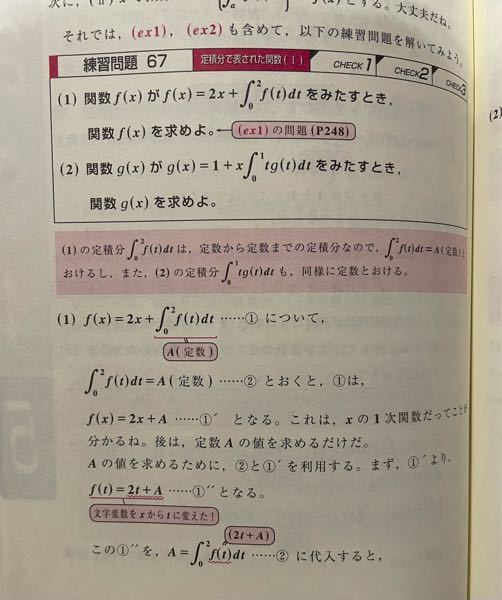 それでは，(ex1)，(ex2) も含めて，以下の練習問題を解いてみよう。
練習問題 67 定積分で表された関数(Ⅰ) CHECK 1 CHECK 2 CHECK 3
(1) 関数 f(x) が f(x) = 2x + ∫₀² f(t)dt をみたすとき，
関数 f(x) を求めよ。←(ex1) の問題 (P248)
(2) 関数 g(x) が g(x) = 1 + x∫₀¹ tg(t)dt をみたすとき，
関数 g(x) を求めよ。
(1) の定積分 ∫₀² f(t)dt は，定数から定数までの定積分なので，∫₀² f(t)dt = A (定数) と
おけるし，また，(2) の定積分 ∫₀¹ tg(t)dt も，同様に定数とおける。
(1) f(x) = 2x + ∫₀² f(t)dt ……① について，
A (定数)
∫₀² f(t)dt = A (定数) ……② とおくと，①は，
f(x) = 2x + A ……①´ となる。これは，x の 1 次関数だってことが
分かるね。後は，定数 A の値を求めるだけだ。
A の値を求めるために，②と①´を利用する。まず，①´より，
f(t) = 2t + A ……①´´ となる。
文字変数を x から t に変えた！
(2t + A)
この①´´を，A = ∫₀² f(t)dt ……② に代入すると，
5
(2)